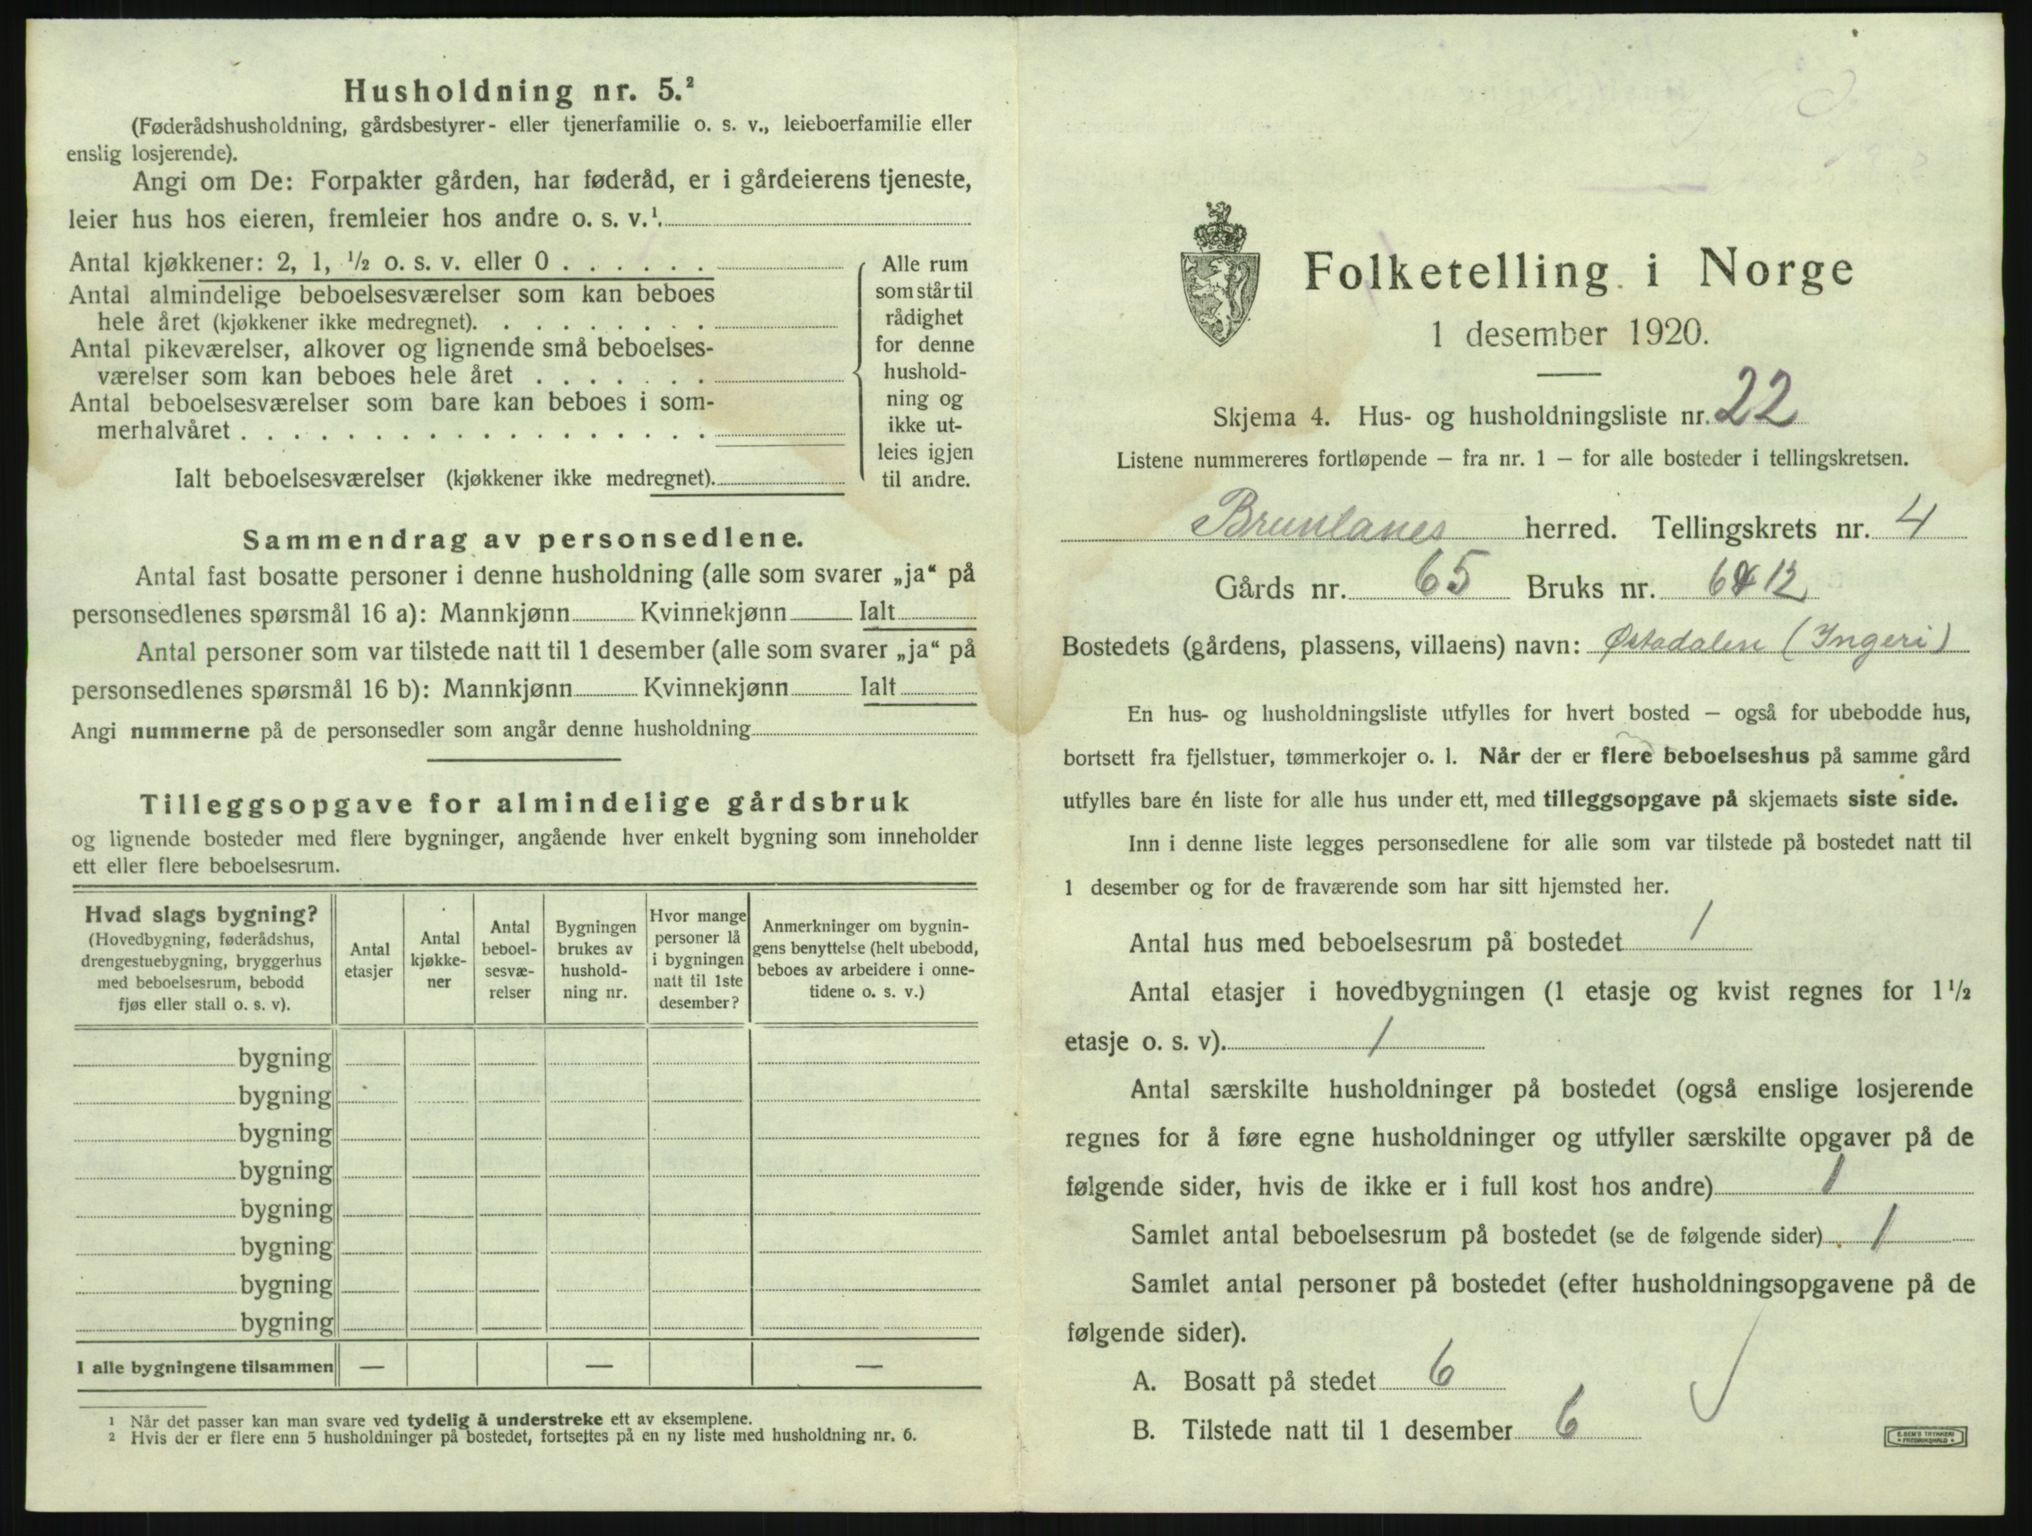 Husholdning nr. 5.²
(Føderådshusholdning, gårdsbestyrer- eller tjenerfamilie o. s. v., leieboerfamilie eller
enslig losjerende).
Angi om De: Forpakter gården, har føderåd, er i gårdeierens tjeneste,
leier hus hos eieren, fremleier hos andre o. s. v.¹.
Antal kjøkkener: 2, 1, ½ o. s. v. eller 0 . . . . . .
Antal almindelige beboelsesværelser som kan beboes
hele året (kjøkkener ikke medregnet). . . . . . . . .
Antal pikeværelser, alkover og lignende små beboelses-
værelser som kan beboes hele året . . . . . . .
Antal beboelsesværelser som bare kan beboes i som-
merhalvåret . . . . . . . . . . . . . . . . . .
Ialt beboelsesværelser (kjøkkener ikke medregnet).
Alle rum
som står til
rådighet
for denne
hushold-
ning og
ikke ut-
leies igjen
til andre.
Sammendrag av personsedlene.
Antal fast bosatte personer i denne husholdning (alle som svarer „ja“ på
personsedlenes spørsmål 16 a): Mannkjønn Kvinnekjønn Ialt
Antal personer som var tilstede natt til 1 desember (alle som svarer „ja“ på
personsedlenes spørsmål 16 b): Mannkjønn Kvinnekjønn Ialt
Angi nummerne på de personsedler som angår denne husholdning
Tilleggsopgave for almindelige gårdsbruk
og lignende bosteder med flere bygninger, angående hver enkelt bygning som inneholder
ett eller flere beboelsesrum.
Hvad slags bygning?
(Hovedbygning, føderådshus,
drengestuebygning, bryggerhus
med beboelsesrum, bebodd
fjøs eller stall o. s. v).
Antal
etasjer
Antal
kjøkke-
ner
Antal
beboel-
sesvæ-
relser
Bygningen
brukes av
hushold-
ning nr.
Hvor mange
personer lå
i bygningen
natt til 1ste
desember?
Anmerkninger om bygnin-
gens benyttelse (helt ubebodd,
beboes av arbeidere i onne-
tidene o. s. v.)
bygning
bygning
bygning
bygning
bygning
bygning
bygning
bygning
I alle bygningene tilsammen — — —
¹ Når det passer kan man svare ved tydelig å understreke ett av eksemplene.
² Hvis der er flere enn 5 husholdninger på bostedet, fortsettes på en ny liste med husholdning nr. 6.
Folketelling i Norge
1 desember 1920.
Skjema 4. Hus- og husholdningsliste nr. 22
Listene nummereres fortløpende — fra nr. 1 — for alle bosteder i tellingskretsen.
Brunlanes herred. Tellingskrets nr. 4
Gårds nr. 65 Bruks nr. 12
Bostedets (gårdens, plassens, villaens) navn: Østadalen (Ingeri)
En hus- og husholdningsliste utfylles for hvert bosted — også for ubebodde hus,
bortsett fra fjellstuer, tømmerkojer o. l. Når der er flere beboelseshus på samme gård
utfylles bare én liste for alle hus under ett, med tilleggsopgave på skjemaets siste side.
Inn i denne liste legges personsedlene for alle som var tilstede på bostedet natt til
1 desember og for de fraværende som har sitt hjemsted her.
Antal hus med beboelsesrum på bostedet 1
Antal etasjer i hovedbygningen (1 etasje og kvist regnes for 1½
etasje o. s. v). 1
Antal særskilte husholdninger på bostedet (også enslige losjerende
regnes for å føre egne husholdninger og utfyller særskilte opgaver på de
følgende sider, hvis de ikke er i full kost hos andre) 1
Samlet antal beboelsesrum på bostedet (se de følgende sider) 1
Samlet antal personer på bostedet (efter husholdningsopgavene på de
følgende sider).
A. Bosatt på stedet 6
B. Tilstede natt til 1 desember 6
E. SEM'S TRYKKERI
FREDRIKSHALD